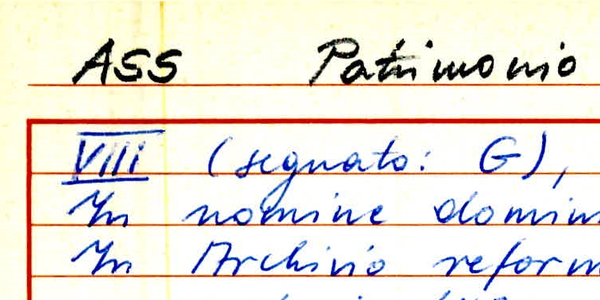 ASS Patrimonio
VIII (segnato: G),
In nomine domin
In Archivio reform